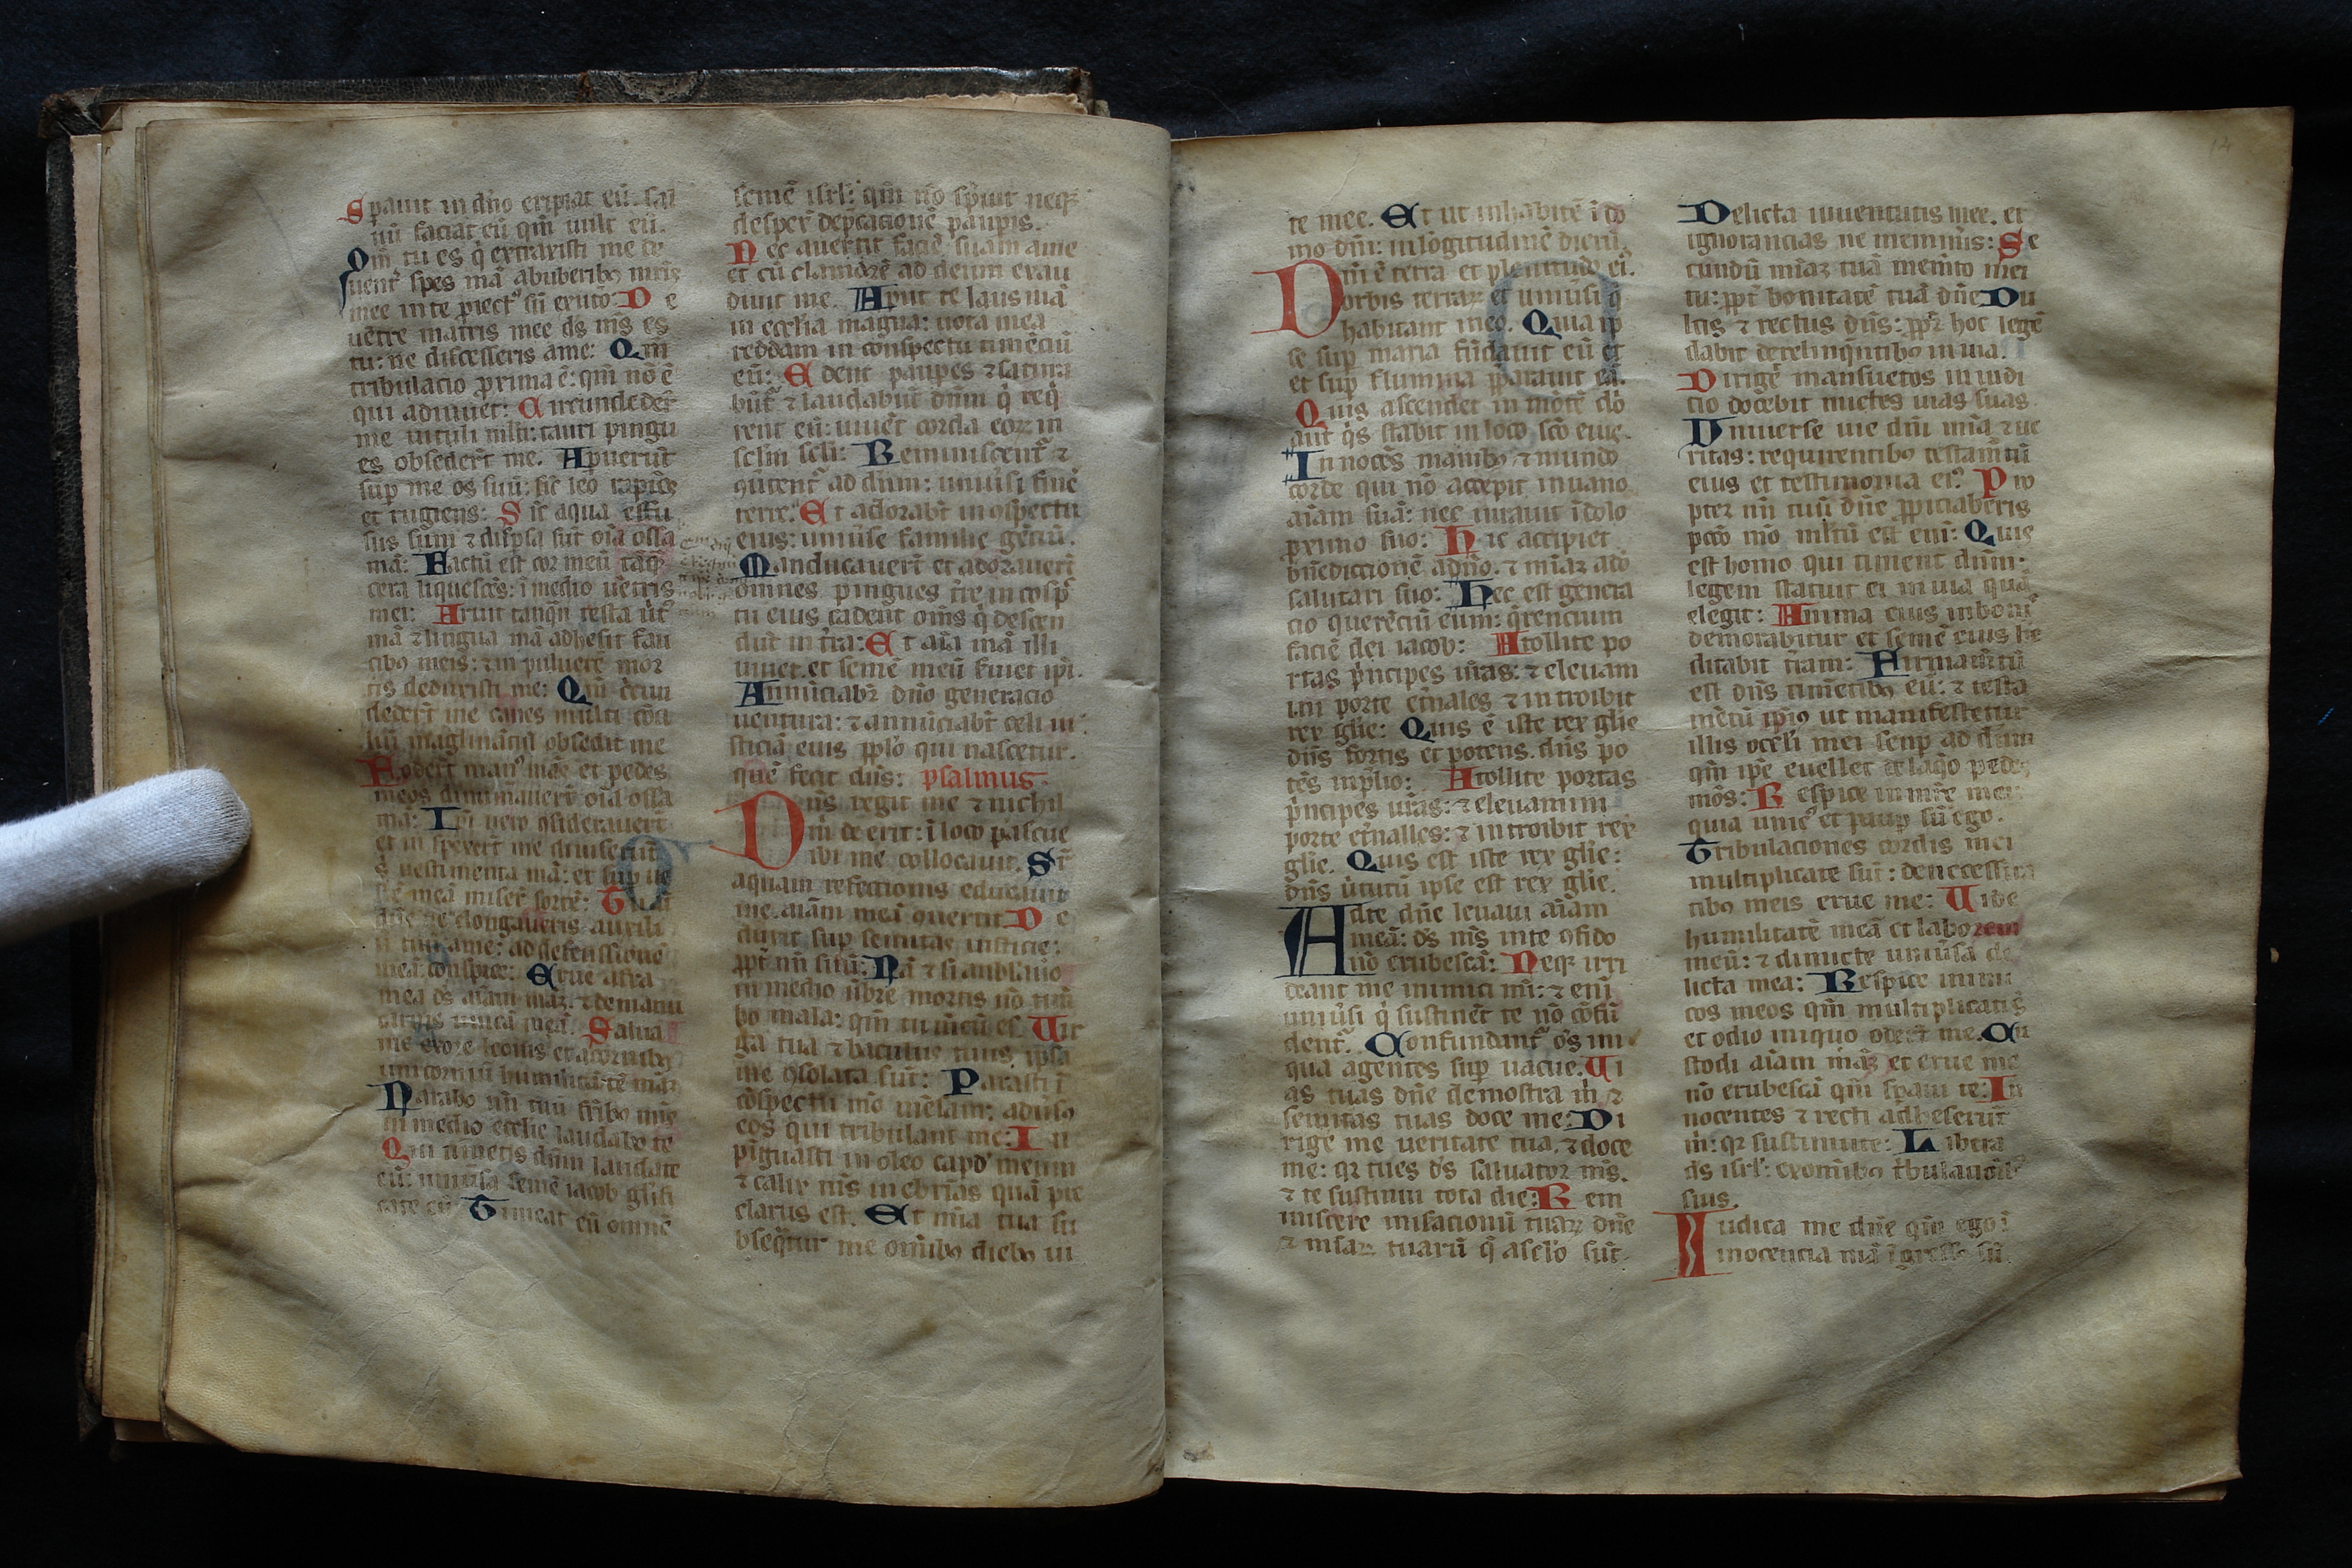 Speravit in dño eripiat eũ. sal
uũ faciat eũ qm̃ vult eũ.
Qm̃ tu es q̇ extraxisti me de
uentr̃ spes mã ab uberibꝯ mr̃is
mee in te proiectꝰ sũ ex utero: De
uẽtre matris mee dš mš es
tu: ne discesseris a me: Qm̃
tribulacio proxima ẽ: qm̃ nõ ẽ
qui adiuuet: Circundeder̃
me uituli mlti: tauri pingu
es obseder̃t me. Aperuer̃t
sup me os suũ: sic̃ leo rapiẽs
et rugiens: Sic̃ aqua effu
sus sum ⁊ dispsa sũt oĩa ossa
mã: Factũ est cor meũ tãq̃
cera liquescẽs: ĩ medio uẽtris
mei: Aruit tanq̃m testa ũtꝰ
mã ⁊ lingua mã adhesit fau
cibꝯ meis: ⁊ in puluerẽ mor
tis deduxisti me: Qm̃ circu
deder̃t me canes multi cõci
liũ malignãciũ obsedit me
Foder̃t manꝰ mãs et pedes
meos dinumauer̃t oĩa ossa
mã: Ipi uero ꝯsiderauer̃t
et in spexer̃t me diuiserũt
s̃ uestimenta mã: et sup ue
stẽ meã miser̃t sortẽ: Tu aũ
dñe ne elongaueris auxili
ũ tuũ a me: ad defenssionẽ
meã conspice: Erue a fra
mea dš aĩam mãꝫ. ⁊ de manu
canis unicã meã. Salua
me ex ore leonis et a cornibꝯ
unicorniũ humilitatẽ mãꝫ
Narabo nm̃ tuũ fr̃ibꝯ mĩs
in medio ecclie laudabo te
Qui timetis dñm laudate
eũ: uniũsa semẽ iacob glifi
cate eũ Timeat eũ omnẽ
semẽ isrl: qm̃ nõ spuit neqꝫ
desper̃ depcacionẽ paupis.
Nec auertit faciẽ suam a me
et cũ clamarẽ ad deum exau
diuit me. Aput te laus mã
in ecclia magna: uota mea
reddam in conspectu timẽciũ
eũ: Edent paupes ⁊ satura
bũt̃ ⁊ laudabũt dñm q̇ reqͥ
rent eũ: uiuẽt corda eoꝝ in
sclm scli: Reminiscent̃ ⁊
ꝯutent̃ ad dnm: uniũsi finẽ
terre. Et adorabt̃ in ꝯspectu
eius: uniũse familie gẽciũ.
Manducauer̃t et adorauer̃t
omnes pingues t̃re in cosp̃
tu eius cadent om̃s q̇ descen
dũt in t̃ra: Et aĩa mã illi
uiuet. et semẽ meũ suiet ipi.
Annũciabr̃ dño generacio
uentura: ⁊ annũciabt̃ celi iu
sticiã eius pplo qui nascetur.
quẽ fecit dñs: psalmus
Dñs regit me ⁊ nichil
m̃ de erit: ĩ loco pascue
ibi me collocauit. Sr̃
aquam refectionis educauit
me. aĩam meã ꝯuertit De
duxit sup semitas iusticie:
ppt̃ nm̃ suũ: Nã ⁊ si anblauõ
in medio ũbre mortis nõ tim
bo mala: qm̃ tu mecũ es. Uir
ga tua ⁊ baculus tuus ipsa
me ꝯsolata sũt: Parasti ĩ
cõspectu mõ mẽsam: adũsꝯ
eos qui tribulant me: In
pĩguasti in oleo capd̕ meum
⁊ calix mš inebriãs quã pre
clarus est. Et mĩa tua su
bseq̃tur me omĩbꝯ diebꝯ ui
te mee. Et ut inhabitẽ ĩ do
mo dñi: in lõgitudinẽ dierũ.
Dñi ẽ terra et plenitudo eiꝰ.
orbis terraꝝ et uniũsi q̇
habitant in eo. Quia ip
se sup maria fũdauit eũ et
et sup flumina pparauit eũ.
Quis ascendet in mõtẽ dñi
aut q̇s stabit in loco sc̃o eius.
Innocẽs manibꝯ ⁊ mundo
corde qui nõ accepit in uano
aĩam suã: nec iurauit ĩ dolo
pximo suo: Hic accipiet
bñediccionẽ a dño. ⁊ mĩaꝫ a dõ
salutari suo: Hec est genera
cio querẽciũ eum: q̃rencium
faciẽ dei iacob: Atollite po
rtas p̃ncipes ũras: ⁊ eleuam
ini porte et̃nales ⁊ in troibit
rex glie: Quis ẽ iste rex glie
dñs fortis et potens. dñs po
tẽs in plio: Atollite portas
p̃ncipes ũras: ⁊ eleuamini
porte et̃nalles: ⁊ in troibit rex
glie. Quis est iste rex glie:
dñs ũtutũ ipse est rex glie.
Ad te dñe leuaui aĩam
meã: dš mš in te ꝯfido
nõ erubescã: Neqꝫ irri
deant me inimici mĩ: ⁊ enĩ
uniũsi q̇ sustinẽt te nõ cõfũ
dent̃. Confundant̃ oš ini
qua agentes sup uacue. Ui
as tuas dñe demostra m̃ ⁊
semitas tuas doce me: Di
rige me ueritate tua. ⁊ doce
me: qꝛ tu es dš saluator mš.
⁊ te sustinui tota die: Rem
iniscere misacionũ tuaꝝ dñe
⁊ misaꝝ tuarũ q̃ a selo sũt
Delicta iuuentutis mee. et
ignorancias ne meminiš: Se
cundũ mĩaꝫ tuã memto mei
tu: ppt̃ bonitatẽ tuã dñe Du
lcis ⁊ rectus dñs: ppt̃ hoc legẽ
dabit derelinq̃ntibꝯ in uia.
Dirigẽ mansuetos in iudi
cio docebit mittes uias suas
Uniuerse uie dñi mĩa ⁊ ue
ritas: requirentibꝯ testam̃tũ
eius et testimonia eiꝰ. Pro
pter nm̃ tuũ dñe ppiciaberis
pccõ mõ mltũ est enĩ: Quis
est homo qui timent dñm:
legem statuit ei in uia quã
elegit: Anima eius in bonis
demorabitur et semẽ eius he
ditabit t̃ram: Firmam̃tũ
est dñs timẽtibꝯ eũ: ⁊ testa
mẽtũ ipiꝰ ut manifestetur
illis oculi mei semp ad dñm
qm̃ ipe euellet de laqo pedes
mõs: Respice in me ⁊ mi
quia unicꝰ et paup sũ ego.
Tribulaciones cordis mei
multiplicate sũt: de neccessita
tibꝯ meis erue me: Uide
humilitatẽ meã et laborem
meũ: ⁊ dimicte uniũsa de
licta mea: Respice inimi
cos meos qm̃ multiplicatiš
et odio iniquo oder̃t me. Cu
stodi aĩam mãꝫ et erue me
nõ erubescã qm̃ spaui ĩ te: In
nocentes ⁊ recti adheserũt
m̃: qꝛ sustinui te: Libera
dš isrl: ex omĩbꝯ t̃bulacoĩbꝰ
suis.
Iudica me dñe qm̃ ego ĩ
inocencia mã ĩgressꝯ sũ.